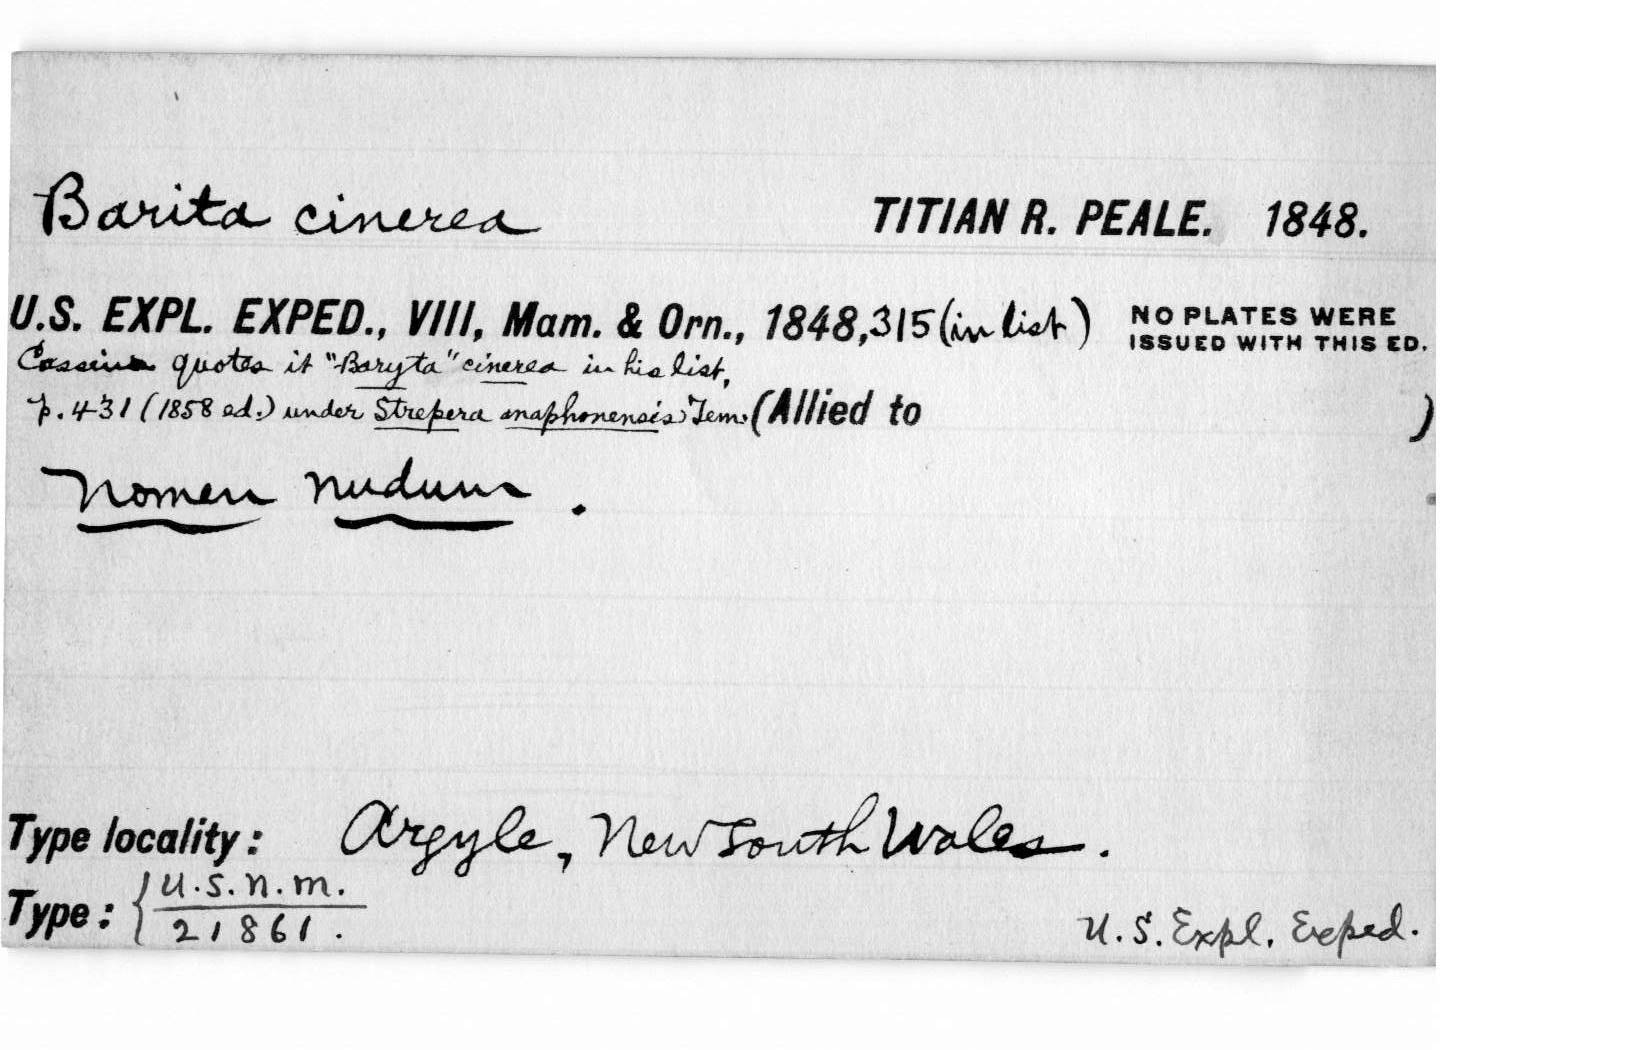 Barita cinerea TITIAN R. PEALE. 1848.
U.S. EXPL. EXPED., VIII, Mam. & Orn., 1848, 315 (in list) NO PLATES WERE
ISSUED WITH THIS ED.
Cassin quotes it "Baryta" cinerea in his list,
p. 431 (1858 ed.) under Strepera anaphonensis Tem. (Allied to )
Nomen nudum.
Type locality: Argyle, New South Wales.
Type: { U.S.N.M.
21861. U.S. Expl. Exped.